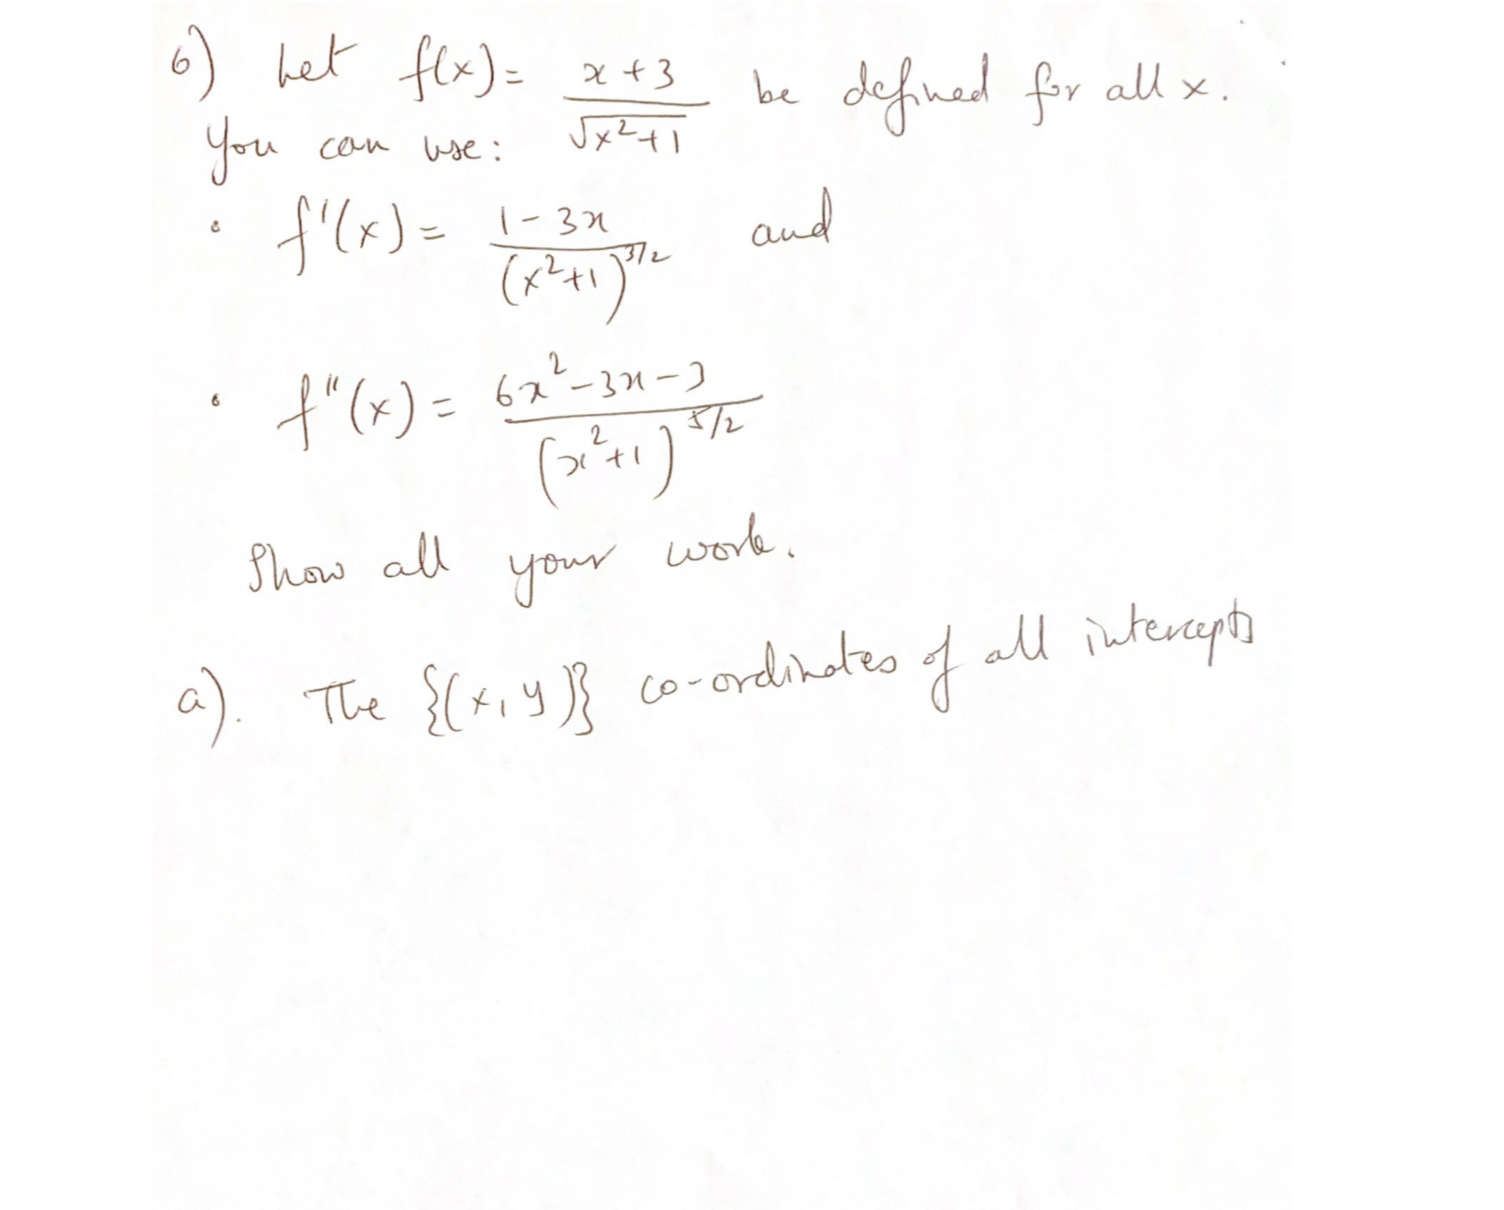 6) Let f(x) = x + 3 / √x²+1 be defined for all x.
You can use:
• f'(x) = 1 - 3x / (x²+1)^3/2 and
• f"(x) = 6x² - 3x - 3 / (x²+1)^5/2
Show all your work.
a). The {(x, y)} co-ordinates of all intercepts